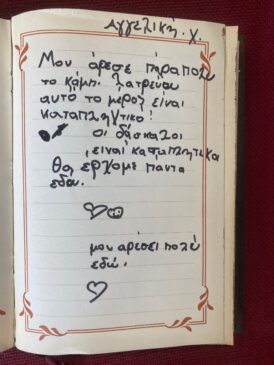 Αγγελική. Χ.
Μου άρεσε πάραπολυ
το κάμπ. λατρευω
αυτό το μερος είναι
καταπληκτικό!
οι δάσκαλοι
είναι καταπληκτικοι
θα ερχομε παντα
εδω.
μου αρέσει πολύ
εδώ.